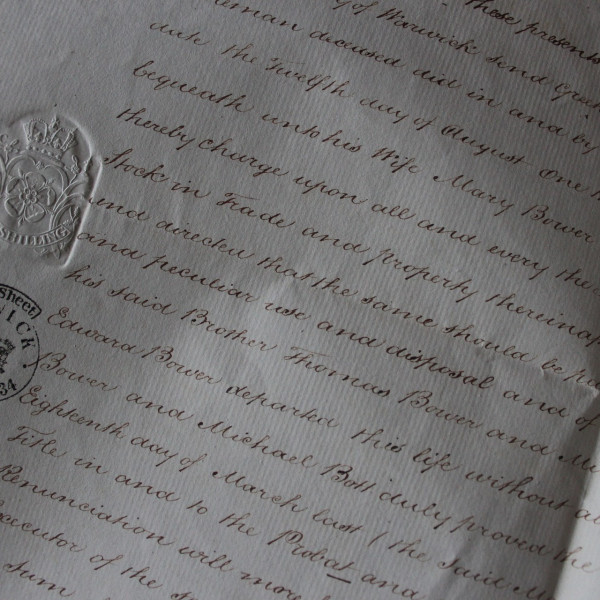 y of Warwick send Gree
These presents
leman deceased did in and by
date the Twelfth day of August One
bequeath unto his Wife Mary Bower
thereby charge upon all and every the
Stock in Trade and property thereinaf
and directed that the same should be
and peculiar use and disposal and of
his said Brother Thomas Bower and
Edward Bower departed this life without
Bower and Michael Bott duly proved the
Eighteenth day of March last (the said
Title in and to the Probat and
Renunciation will more
Executor of the
sum
SHILLING
Sheet)
WICK
34